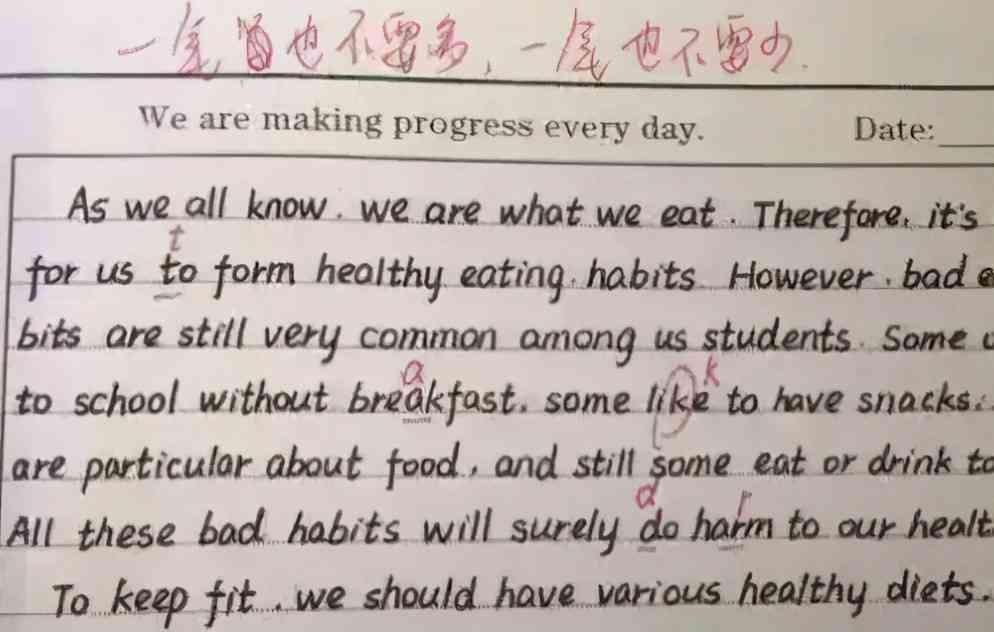 一尾也不要多,一尾也不要少.
We are making progress every day. Date:
As we all know, we are what we eat. Therefore, it's
t
for us to form healthy eating habits. However, bad
bits are still very common among us students. Some
a k
to school without breakfast, some like to have snacks.
are particular about food, and still some eat or drink to
d r
All these bad habits will surely do harm to our healt
To keep fit, we should have various healthy diets.